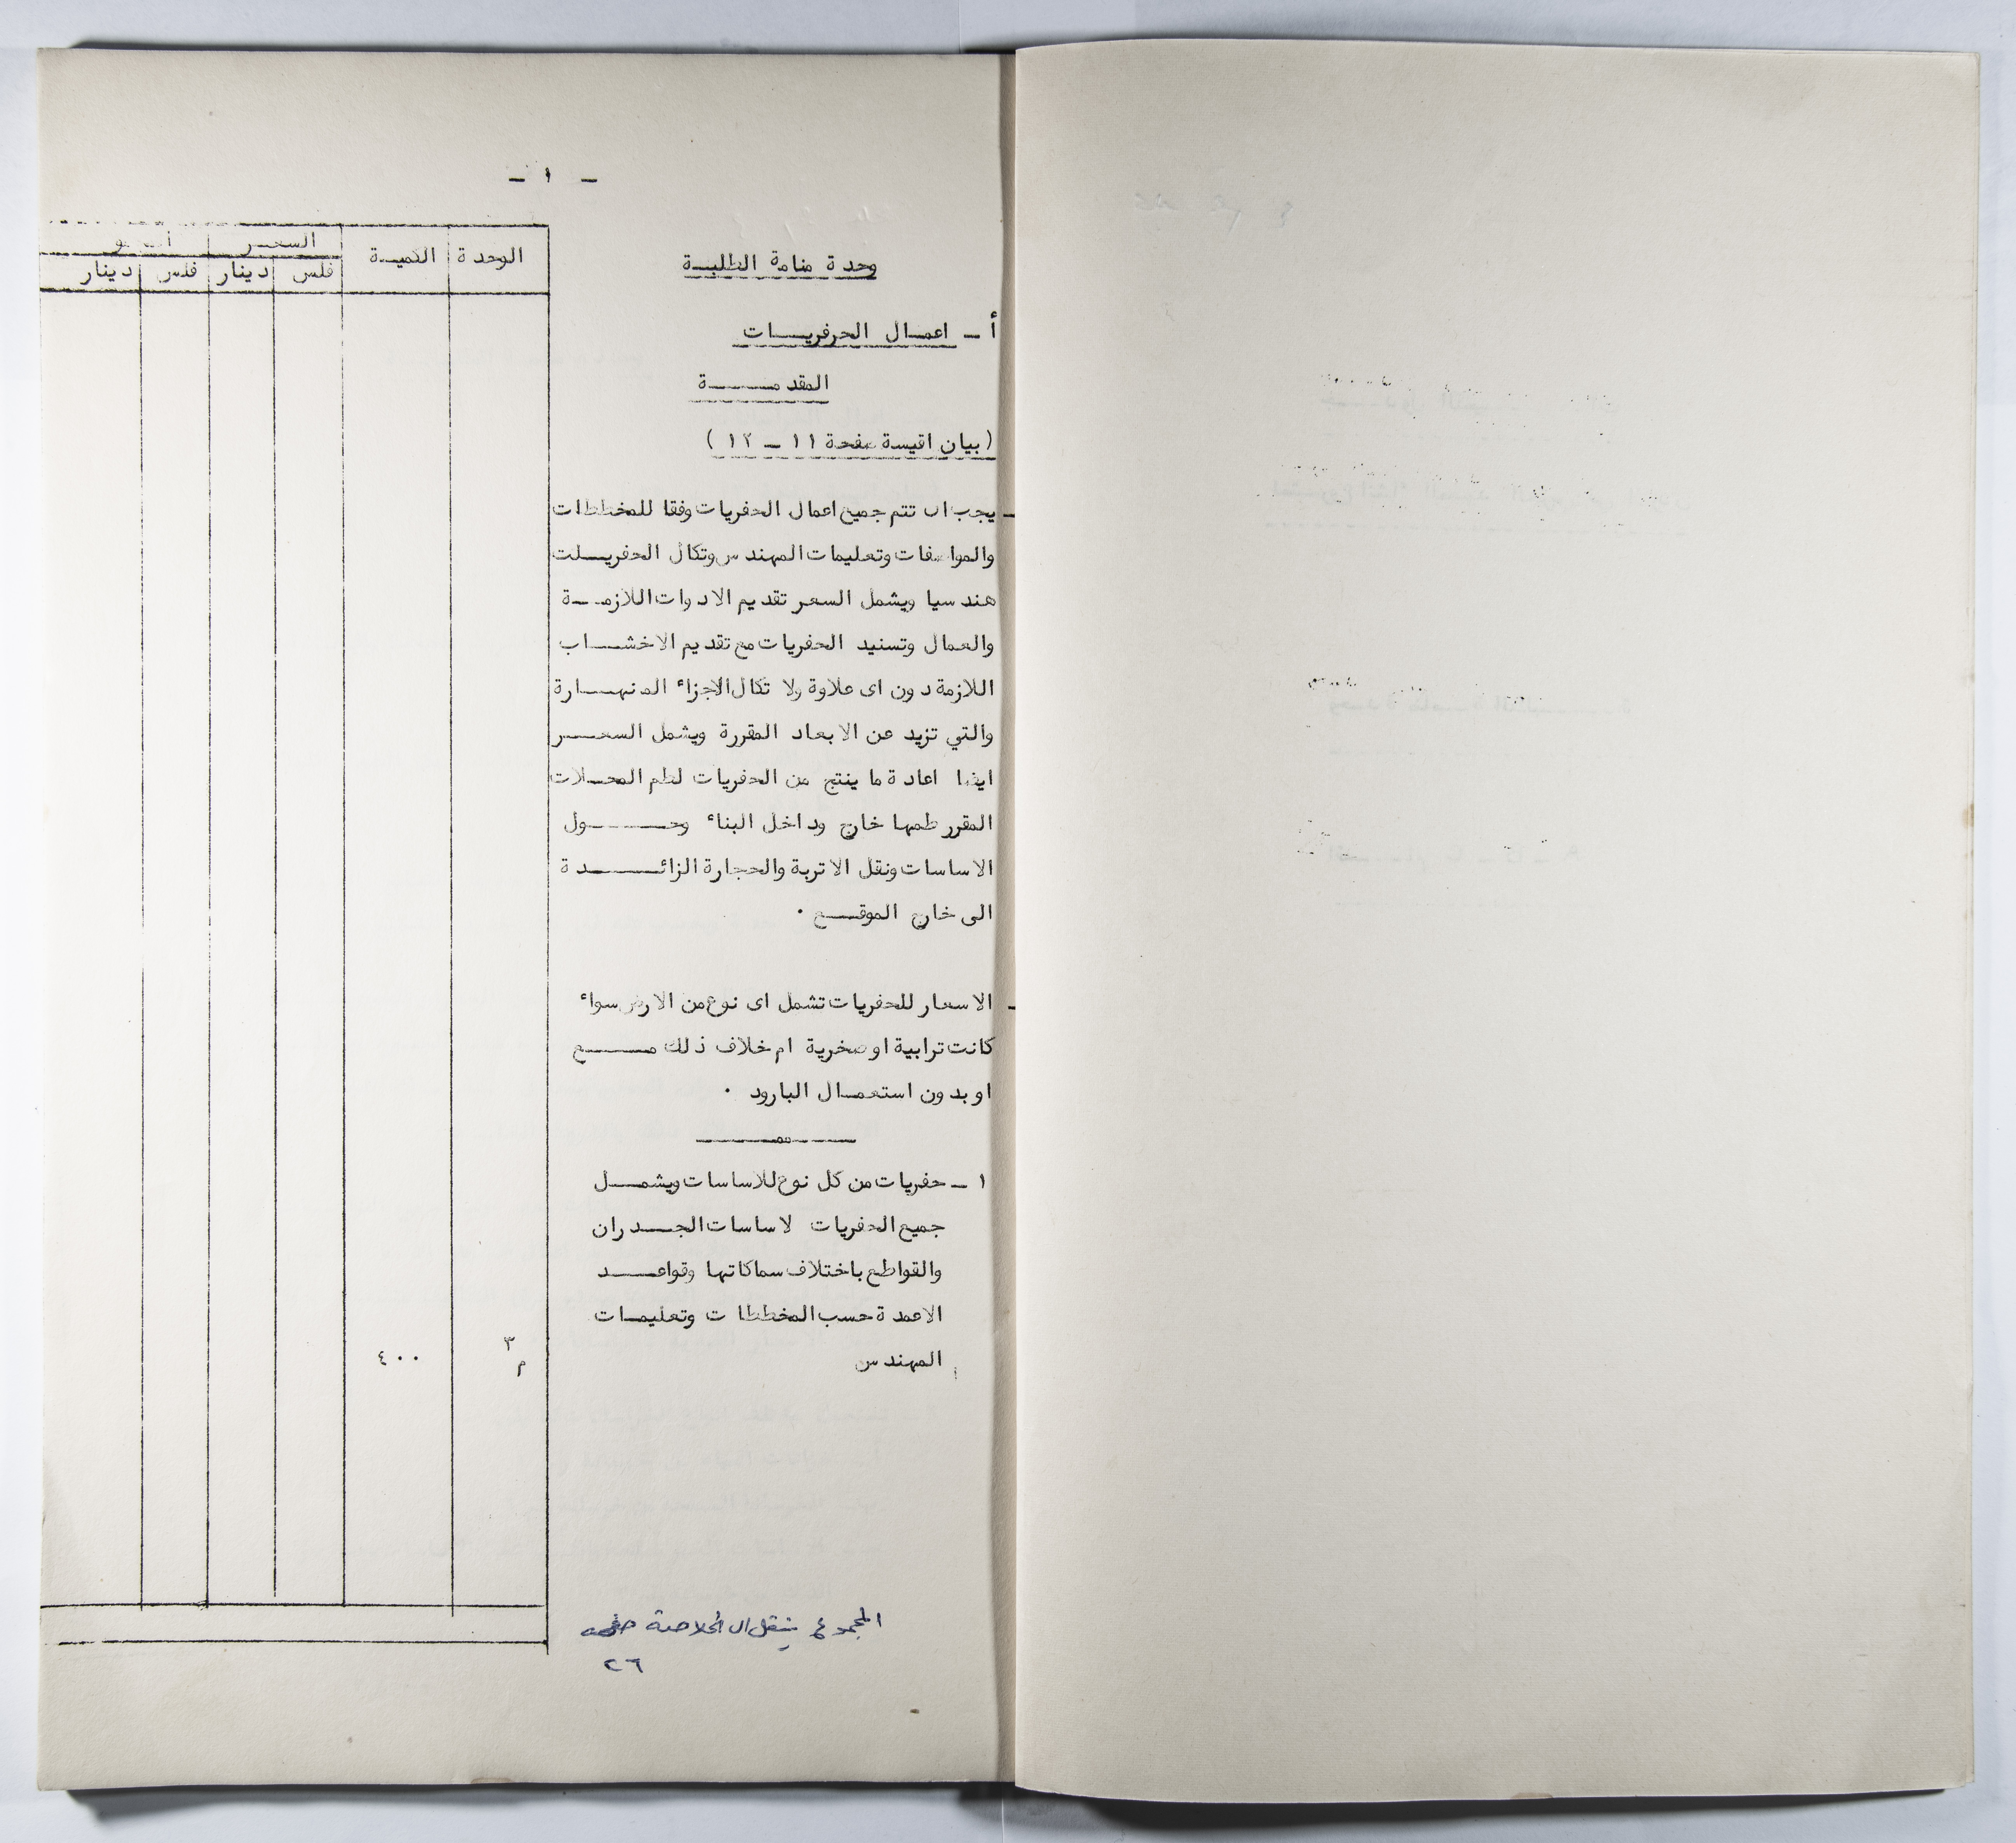 - ١ -
وحدة منامة الطلبة
الوحدة الكمية السعر
فلس دينار فلس دينار
أ - اعمال الحرفريات
المقدمة
( بيان اقيسة صفحة ١١ - ١٢ )
- يجب ان تتم جميع اعمال الحفريات وفقا للمخططات
والمواصفات وتعليمات المهندس وتكال الحفريلت
هندسيا ويشمل السعر تقديم الادوات اللازمة
والعمال وتسنيد الحفريات مع تقديم الاخشاب
اللازمة دون اى علاوة ولا تكال الاجزاء المنهارة
والتي تزيد عن الابعاد المقررة ويشمل السعر
ايضا اعادة ما ينتج من الحفريات لطم المحلات
المقرر طمها خارج وداخل البناء وحول
الاساسات ونقل الاتربة والحجارة الزائدة
الى خارج الموقع .
- الاسعار للحفريات تشمل اى نوع من الارض سواء
كانت ترابية او صخرية ام خلاف ذلك مع
او بدون استعمال البارود .
١ - حفريات من كل نوع للاساسات ويشمل
جميع الحفريات لاساسات الجدران
والقواطع باختلاف سماكاتها وقواعد
الاعمدة حسب المخططات وتعليمات
المهندس م٣ ٤٠٠
المجموع ينقل الى الخلاصة صفحة
٢٦